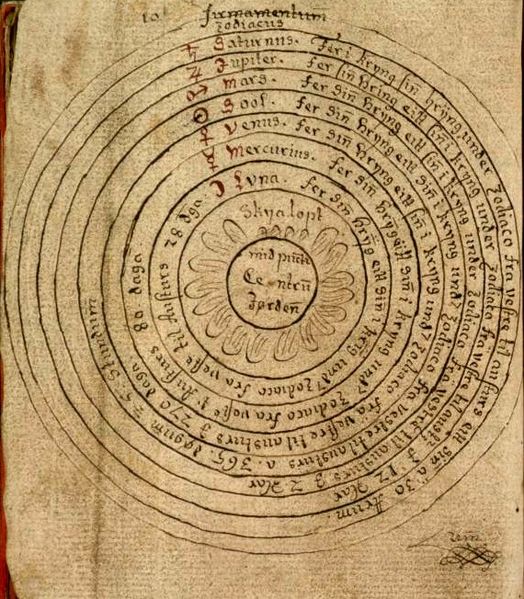 10
firmamentum
Zodiacus
♄ Saturnus. Fer i kryng sin hryng under Zodiaco fra vestre til austurs eitt sin a 30 Arum.
♃ Jupiter. fer sin hring eitt sin i kryng under Zodiaco fra vestre til austurs 12 Aar
♂ Mars. fer sin hryng eitt sin i kryng under Zodiaco fra vestre til austurs 2 Aar
☉ Sool. fer sin hryng eitt sin i kryng und Zodiaco fra vestre til austurs a 365 dögum 5 Stundum
♀ Venus. fer sin hryng eitt sin i kryng und Zodiaco fra vestre til austurs 270 daga.
☿ Mercurius. fer sin hryng eitt sin i kryng und Zodiaco fra veste Austurs 80 daga
☽ Luna. fer sin hryng eitt sin i kryng und Zodiaco fra veste til austurs 28 dga
Skyalopt
mid punct
Centru
Jorden
um